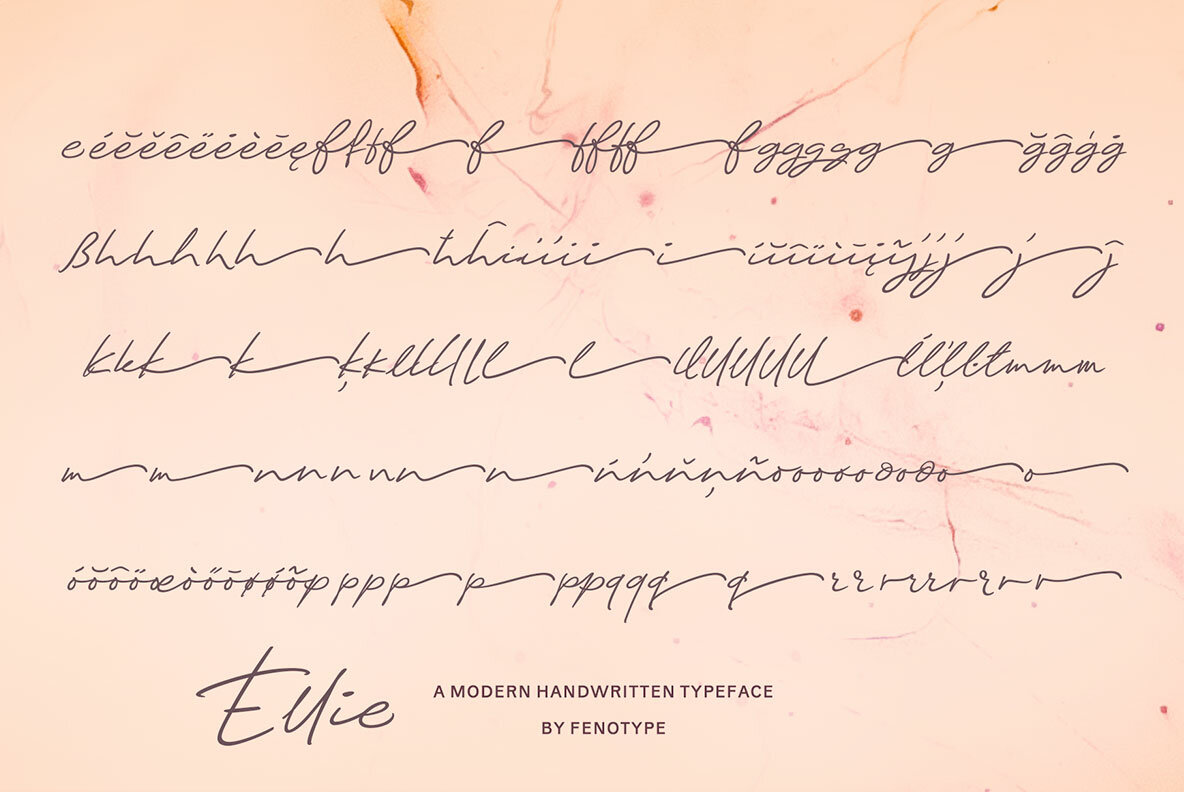 eéěĕêëėèēęffff f ffff fggggg g ğĝģġ
ßhhhhh h ħĥiiiii i íĭîïìīįĩjjjj j ĵ
kkk k ķĸlllllll l lllllll ĺľļŀłmmm
m m nnnnnn n ńŉňņñooooooooo o
óŏôöœòőōøǿõpppp p ppqqq q rrrrrrrrr
Ellie
A MODERN HANDWRITTEN TYPEFACE
BY FENOTYPE